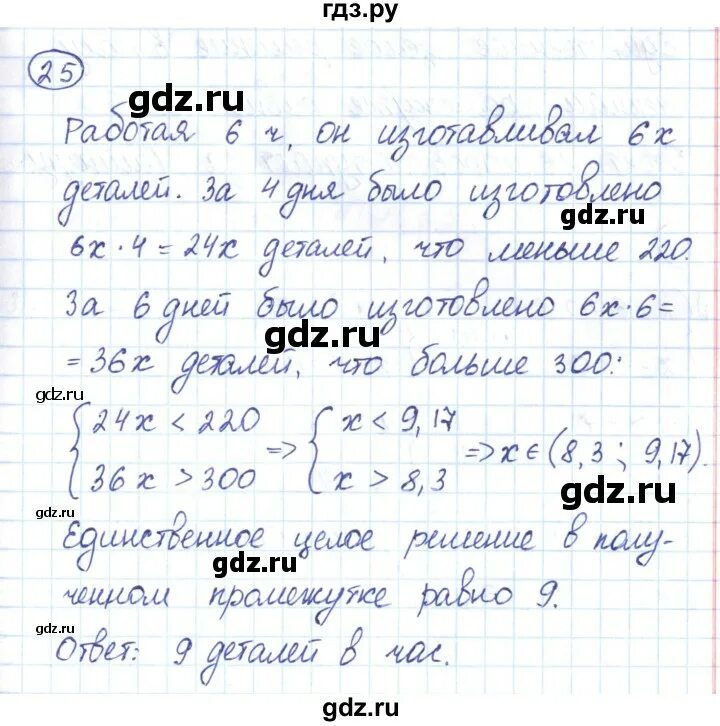 гдз.ру
25
gdz.ru
gdz.ru
Работая 6 ч, он изготавливал 6x
деталей. За 4 дня было изготовлено
gdz.ru
6x·4=24x деталей, что меньше 220.
За 6 дней было изготовлено 6x·6=
gdz.ru
=36x деталей, что больше 300:
gdz.ru
{24x < 220 => {x < 9,17 => x∈(8,3; 9,17).
36x > 300 x > 8,3
gdz.ru
gdz.ru
Единственное целое решение в полу-
gdz.ru
ченном промежутке равно 9.
gdz.ru
gdz.ru
Ответ: 9 деталей в час.
gdz.ru
gdz.ru